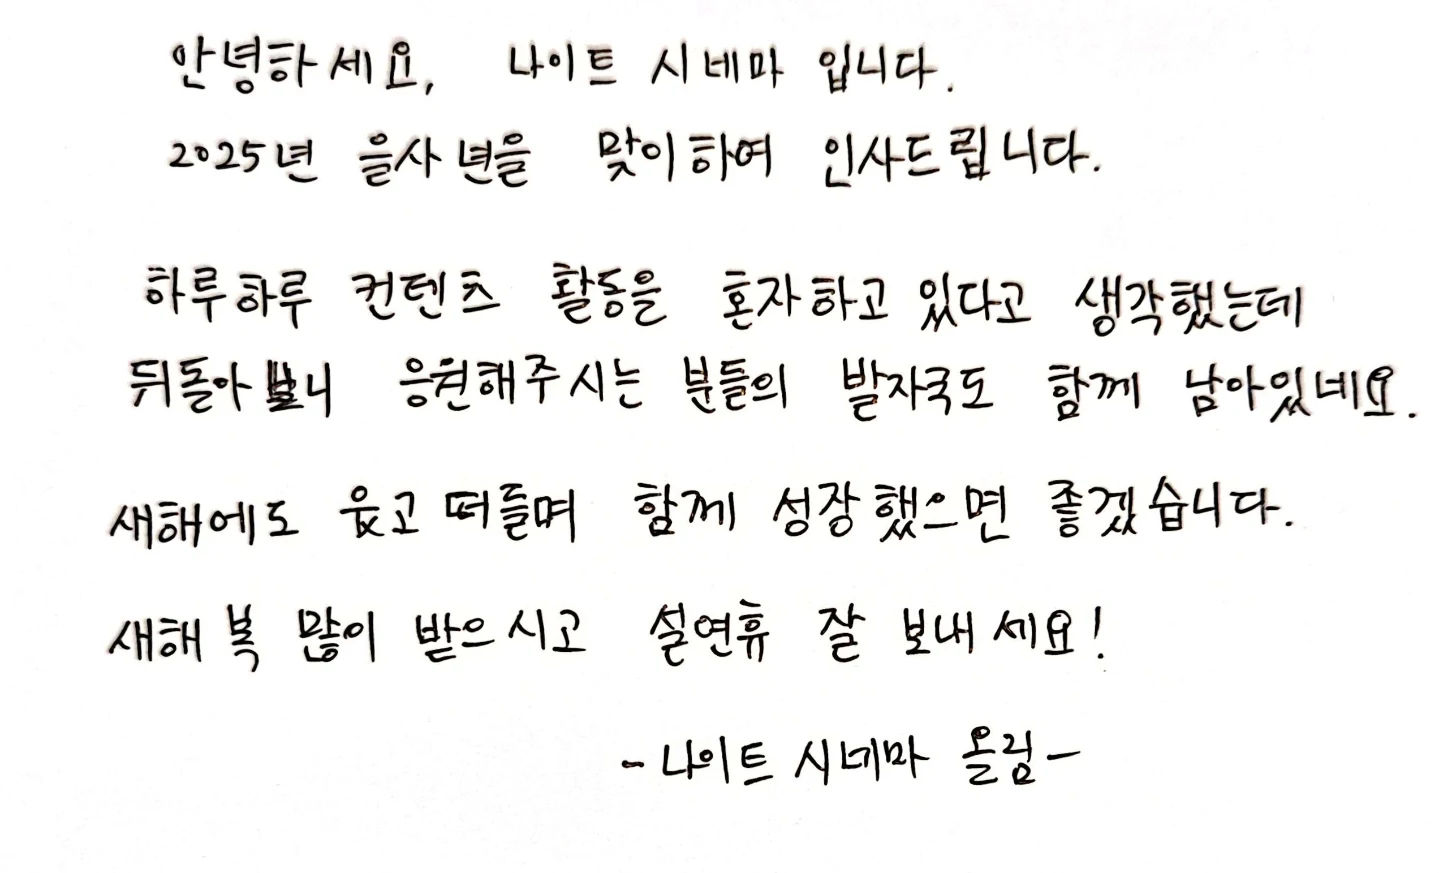 안녕하세요, 나이트 시네마 입니다.
2025년 을사년을 맞이하여 인사드립니다.
하루하루 컨텐츠 활동을 혼자하고 있다고 생각했는데
뒤돌아보니 응원해주시는 분들의 발자국도 함께 남아있네요.
새해에도 웃고 떠들며 함께 성장했으면 좋겠습니다.
새해 복 많이 받으시고 설연휴 잘 보내세요!
-나이트 시네마 올림-